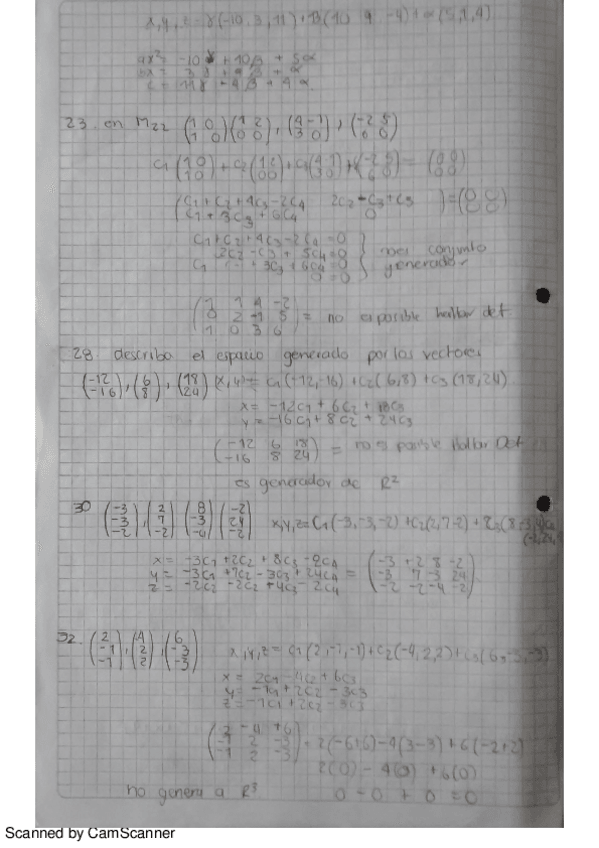 x,y,z = γ(-10, 3, 11) + B(10 9 -4) + α(5,1,4)
-10γ + 10β + 5α
3γ + 9β + α
c = 11γ - 4β + 4α
23. en M22 (1 0 / 1 0) (1 2 / 0 0), (4 -1 / 3 0), (-2 5 / 6 0)
C1 (1 0 / 1 0) + C2 (1 2 / 0 0) + C3 (4 -1 / 3 0) + (-2 5 / 6 0) = (0 0 / 0 0)
(C1 + C2 + 4C3 - 2C4 2C2 - C3 + C3
C1 + 3C3 + 6C4 0 ) = (0 0 / 0 0)
C1 + C2 + 4C3 - 2C4 = 0
2C2 - C3 + 5C4 = 0 no es conjunto
C1 + 3C3 + 6C4 = 0 generador
0 = 0
(1 1 4 -2
0 2 -1 5 ) = no es posible hallar det
1 0 3 6
28. describa el espacio generado por los vectores
(-12 / -16), (6 / 8), (18 / 24) (x,y) = C1(-12,-16) + C2(6,8) + C3(18,24)
x = -12C1 + 6C2 + 18C3
y = -16C1 + 8C2 + 24C3
(-12 6 18 / -16 8 24) = no es posible Hallar Det
es generador de R²
30 (-3 / -3 / -2), (2 / 7 / -2) (8 / -3 / -4) (-2 / 24 / -2) x,y,z = C1(-3,-3,-2) + C2(2,7-2) +
x = -3C1 + 2C2 + 8C3 - 2C4
y = -3C1 + 7C2 - 3C3 + 24C4 = (-3 +2 8 -2 / -3 7 -3 24 / -2 -2 -4 -2)
z = -2C2 - 2C2 + 4C3 - 2C4
32. (2 / -1 / -1), (4 / 2 / 2), (6 / -3 / -3) x,y,z = C1(2,-1,-1) + C2(-4,2,2) + C3(6,-3,-3)
x = 2C1 - 4C2 + 6C3
y = -1C1 + 2C2 - 3C3
z = -1C1 + 2C2 - 3C3
(2 -4 +6 / -1 2 -3 / -1 2 -3) = 2(-6+6) - 4(3-3) + 6(-2+2)
2(0) - 4(0) + 6(0)
no genera a R³ 0 - 0 + 0 = 0
Scanned by CamScanner